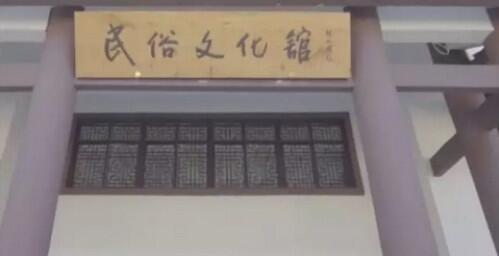 民俗文化館